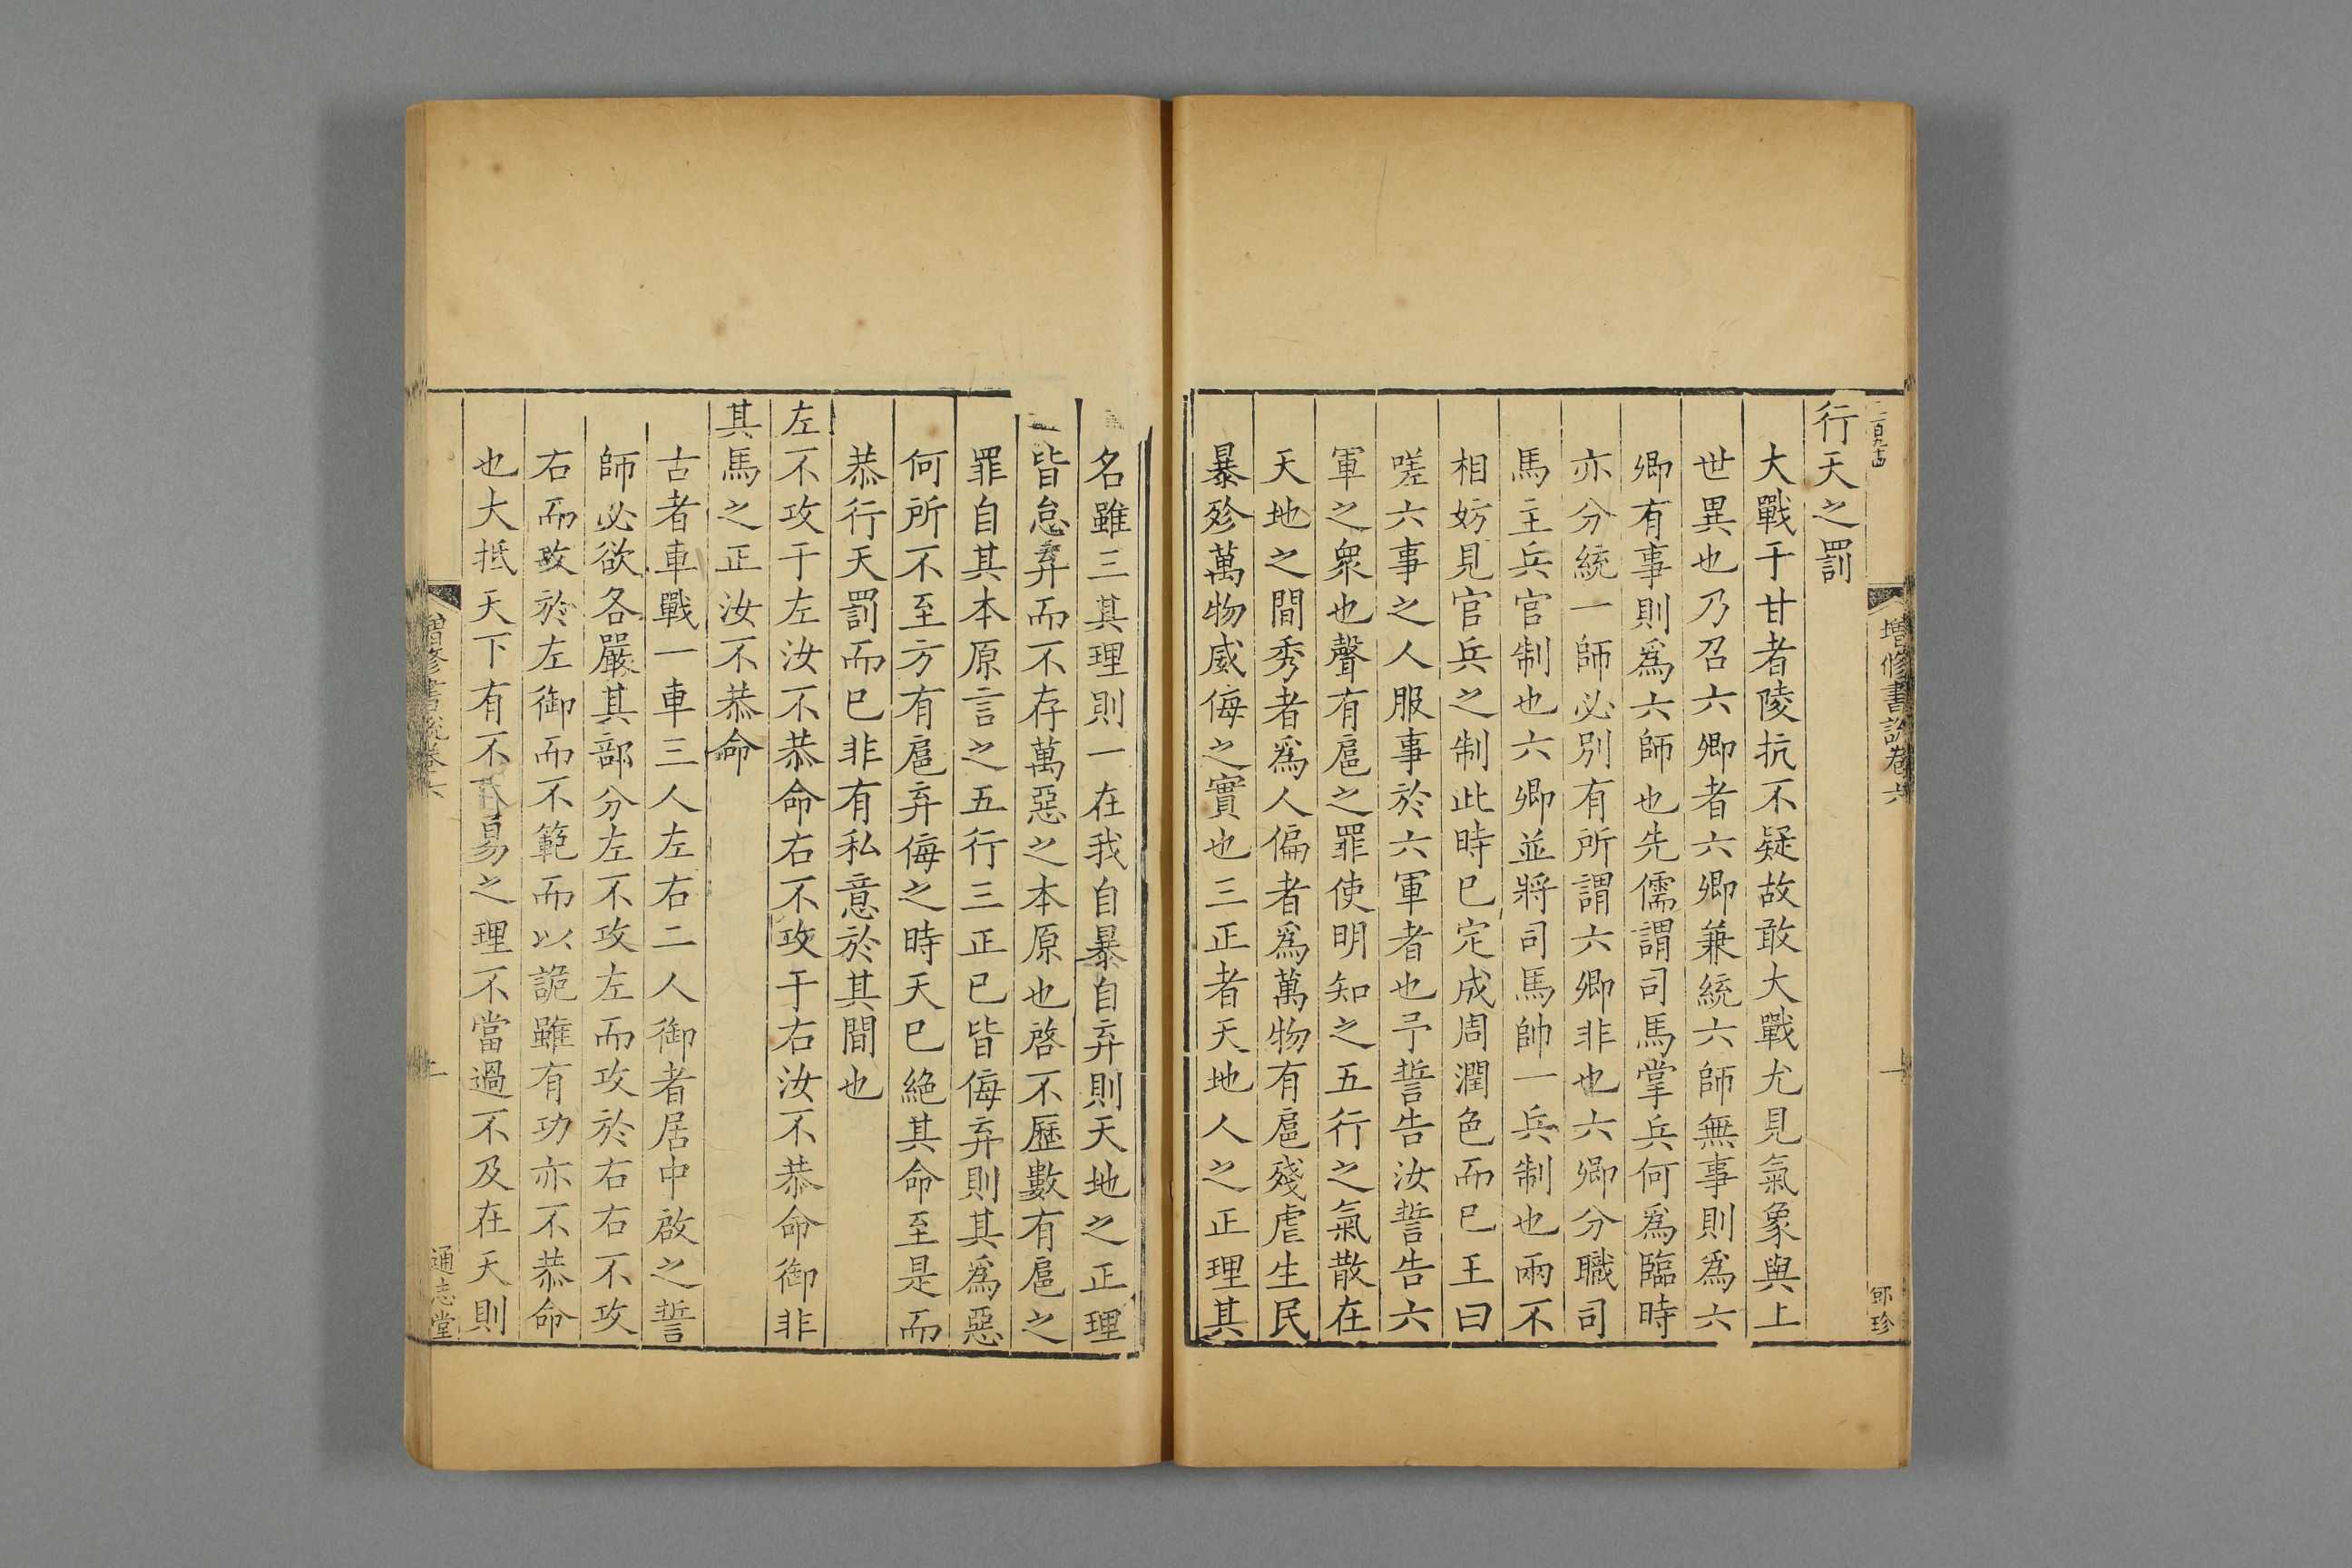 行天之罰
大戰于甘者陵抗不疑故敢大戰尤見氣象與上
世異也乃召六卿者六卿兼統六師無事則爲六
卿有事則爲六師也先儒謂司馬掌兵何爲臨時
亦分統一師必別有所謂六卿非也六卿分職司
馬主兵官制也六卿並將司馬帥一兵制也兩不
相妨見官兵之制此時已定成周潤色而已王曰
嗟六事之人服事於六軍者也予誓告汝誓告六
軍之衆也聲有扈之罪使明知之五行之氣散在
天地之間秀者爲人偏者爲萬物有扈殘虐生民
暴殄萬物威侮之實也三正者天地人之正理其
增修書說卷六
一
郢珍
名雖三其理則一在我自暴自弃則天地之正理
皆怠弃而不存萬惡之本原也啓不歷數有扈之
罪自其本原言之五行三正已皆侮弃則其爲惡
何所不至方有扈弃侮之時天已絶其命至是而
恭行天罰而已非有私意於其間也
左不攻于左汝不恭命右不攻于右汝不恭命御非
其馬之正汝不恭命
古者車戰一車三人左右二人御者居中啟之誓
師必欲各嚴其部分左不攻左而攻於右右不攻
右而攻於左御而不範而以詭雖有功亦不恭命
也大抵天下有不易之理不當過不及在天則
增修書說卷六
一
通志堂